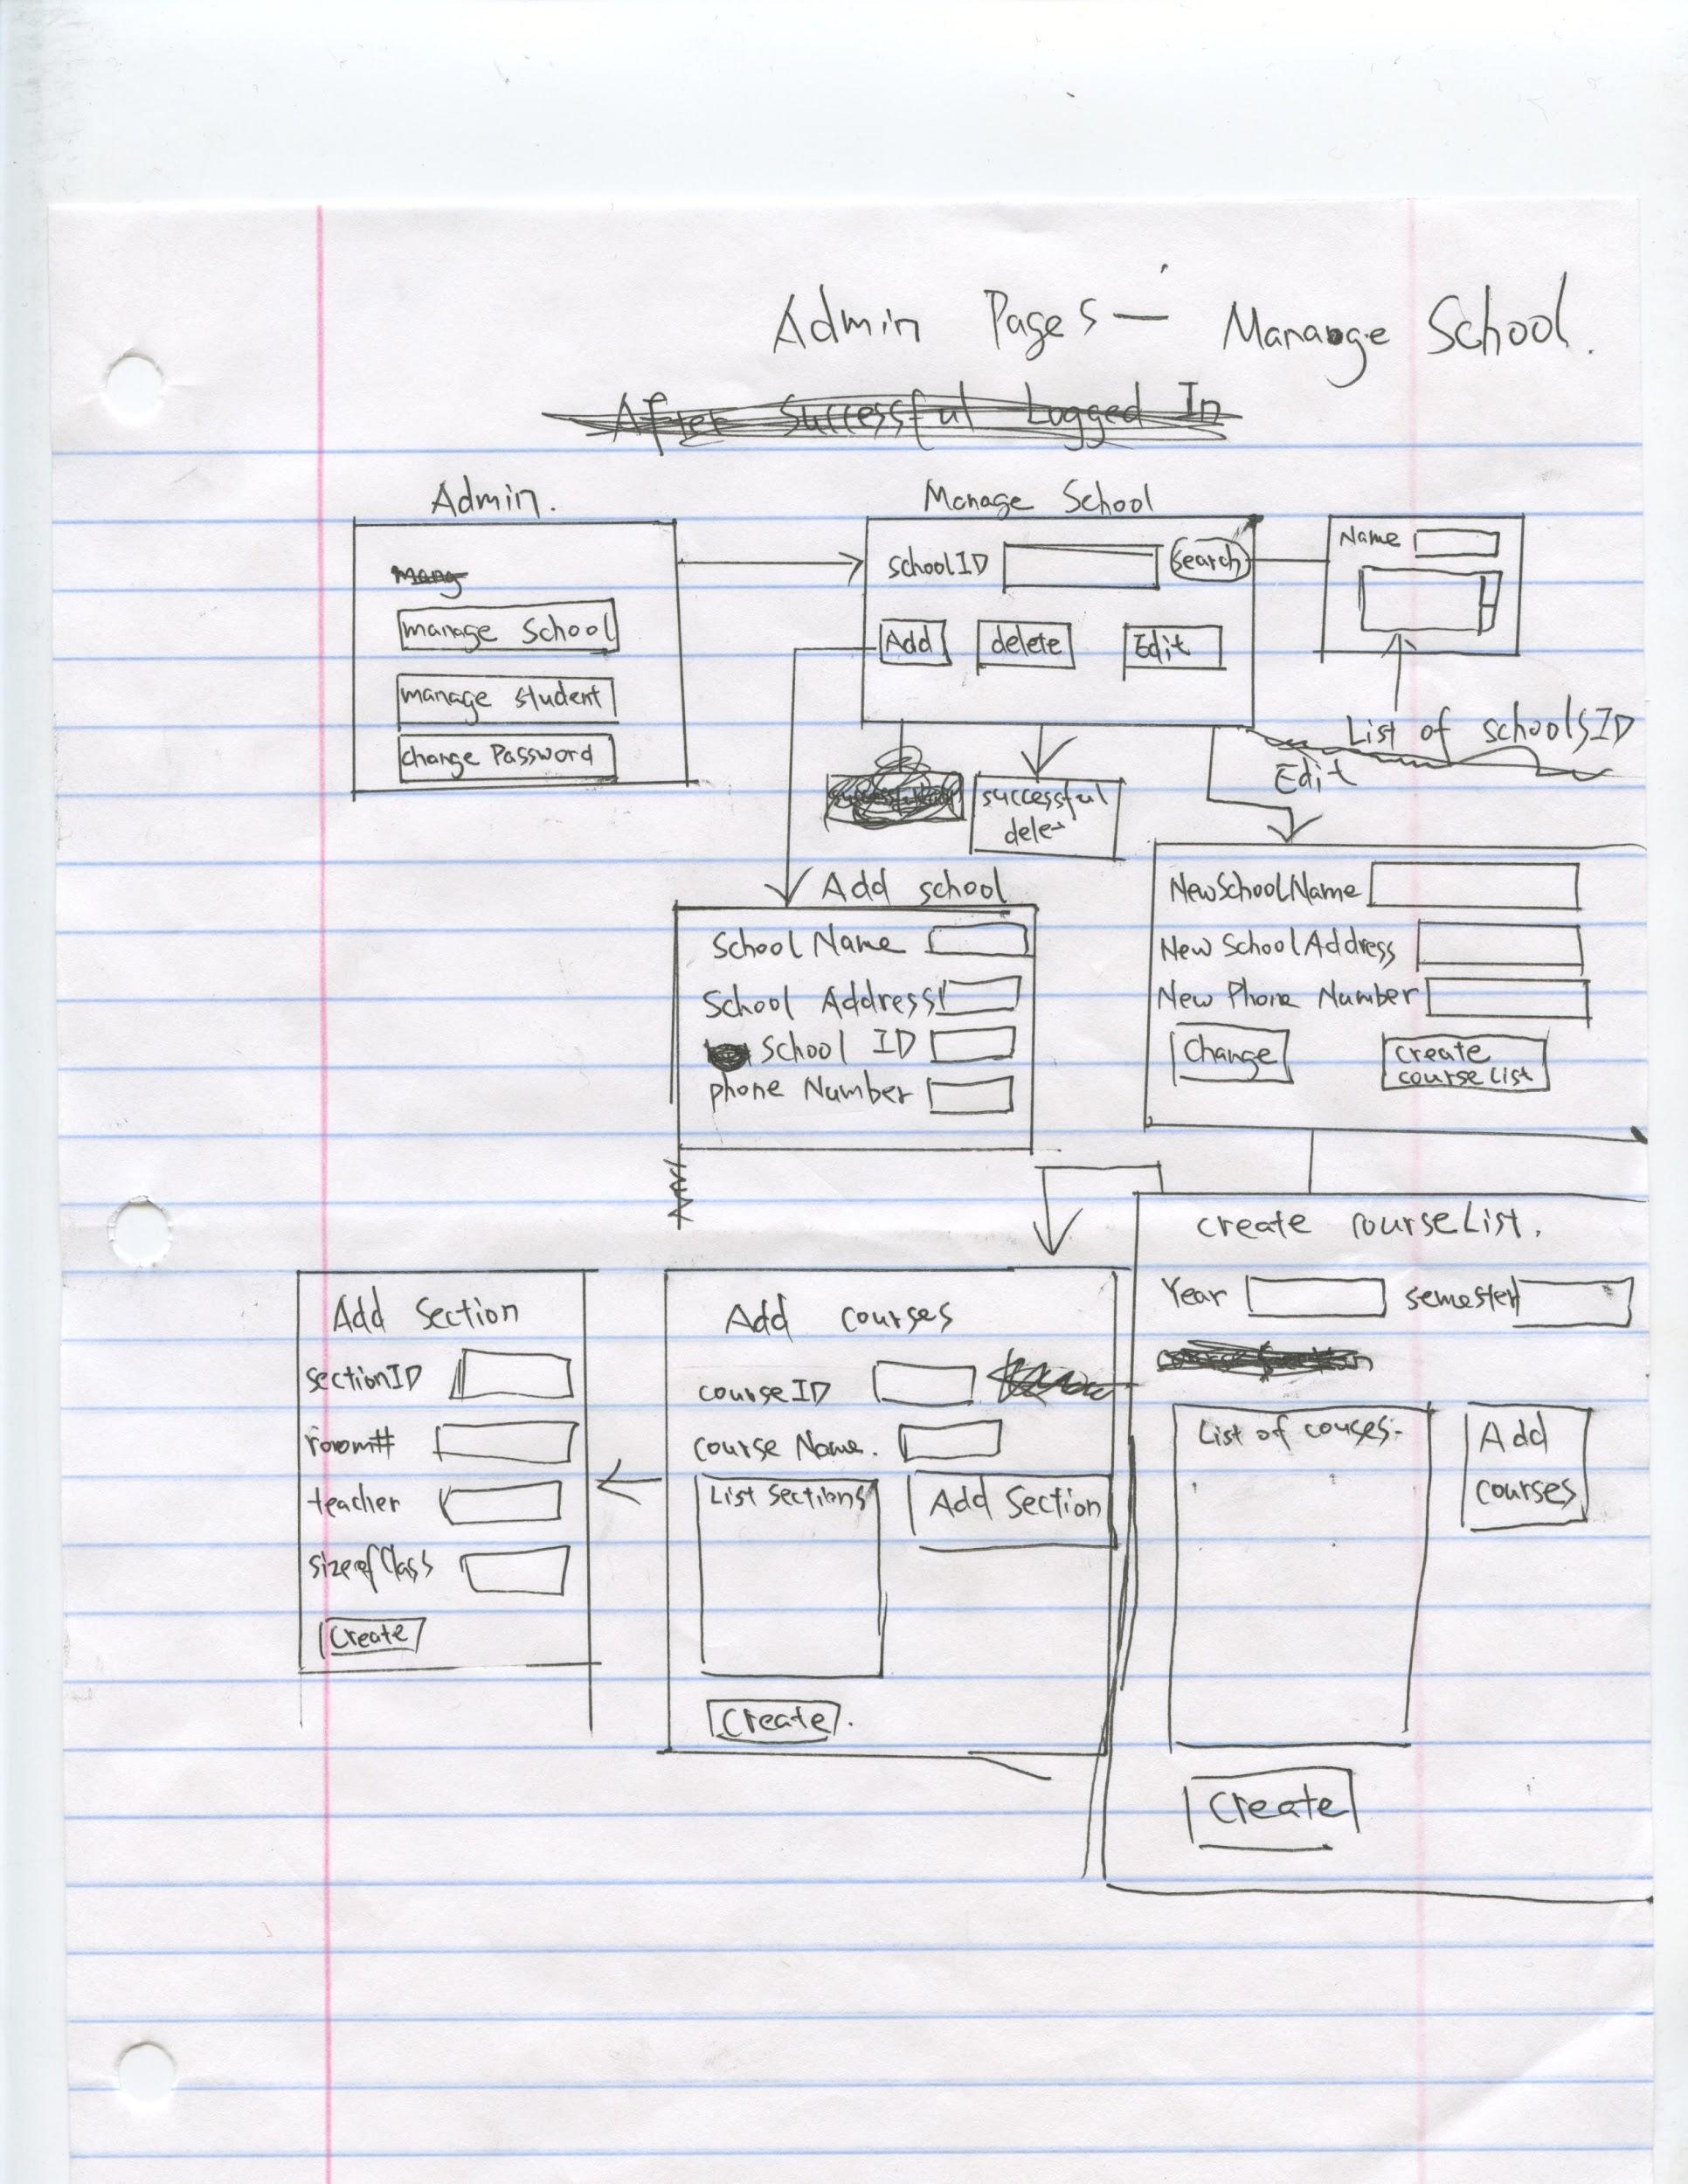 Admin Pages — Manaoge School.
After Successful Logged In
Admin.
Mang
manage School
manage student
change Password
Manage School
schoolID
search
Add
delete
Edit
Name
List of schoolsID
successful
dele
Edit
Add school
School Name
School Address
School ID
phone Number
New School Name
New School Address
New Phone Number
Change
create
course list
create courseList.
Year
semester
List of couses.
Add
courses
Create
Add courses
courseID
course Name.
List Sections
Add Section
Create.
Add Section
sectionID
room#
teacher
sizeofClass
Create